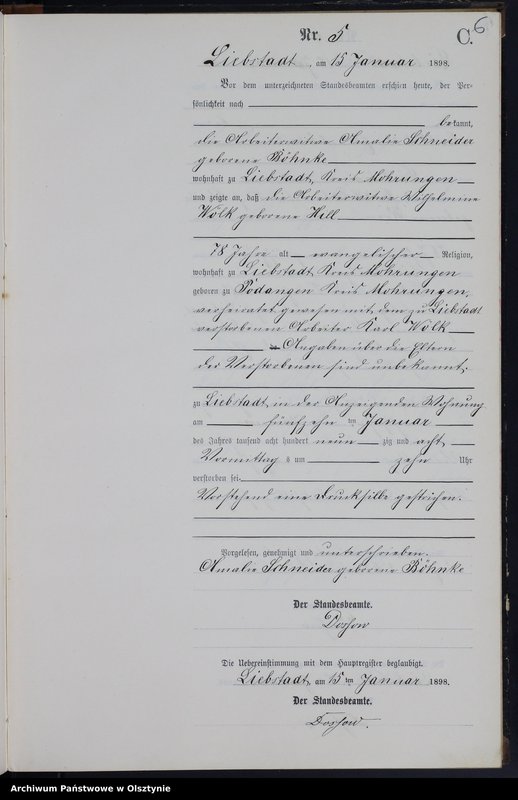 6
Nr. 5
C.
Liebstadt, am 15 Januar 1898.
Vor dem unterzeichneten Standesbeamten erschien heute, der Per-
sönlichkeit nach
bekannt,
die Arbeiterwitwe Amalie Schneider
geborene Böhnke
wohnhaft zu Liebstadt, Kreis Mohrungen
und zeigte an, daß die Arbeiterwitwe Wilhelmine
Wölk geborene Hill
78 Jahre alt evangelischer Religion,
wohnhaft zu Liebstadt, Kreis Mohrungen
geboren zu Podangen Kreis Mohrungen,
verheiratet gewesen mit dem zu Liebstadt
verstorbenen Arbeiter Karl Wölk
Angaben über die Eltern
der Verstorbenen sind unbekannt,
zu Liebstadt, in der Anzeigenden Wohnung
am fünfzehn ten Januar
des Jahres tausend acht hundert neun zig und acht,
Vormittag s um zehn Uhr
verstorben sei.
Vorstehend eine Drucksilbe gestrichen.
Vorgelesen, genehmigt und unterschrieben.
Amalie Schneider geborene Böhnke
Der Standesbeamte.
Die Uebereinstimmung mit dem Hauptregister beglaubigt.
Liebstadt, am 15 ten Januar 1898.
Der Standesbeamte.
Archiwum Państwowe w Olsztynie